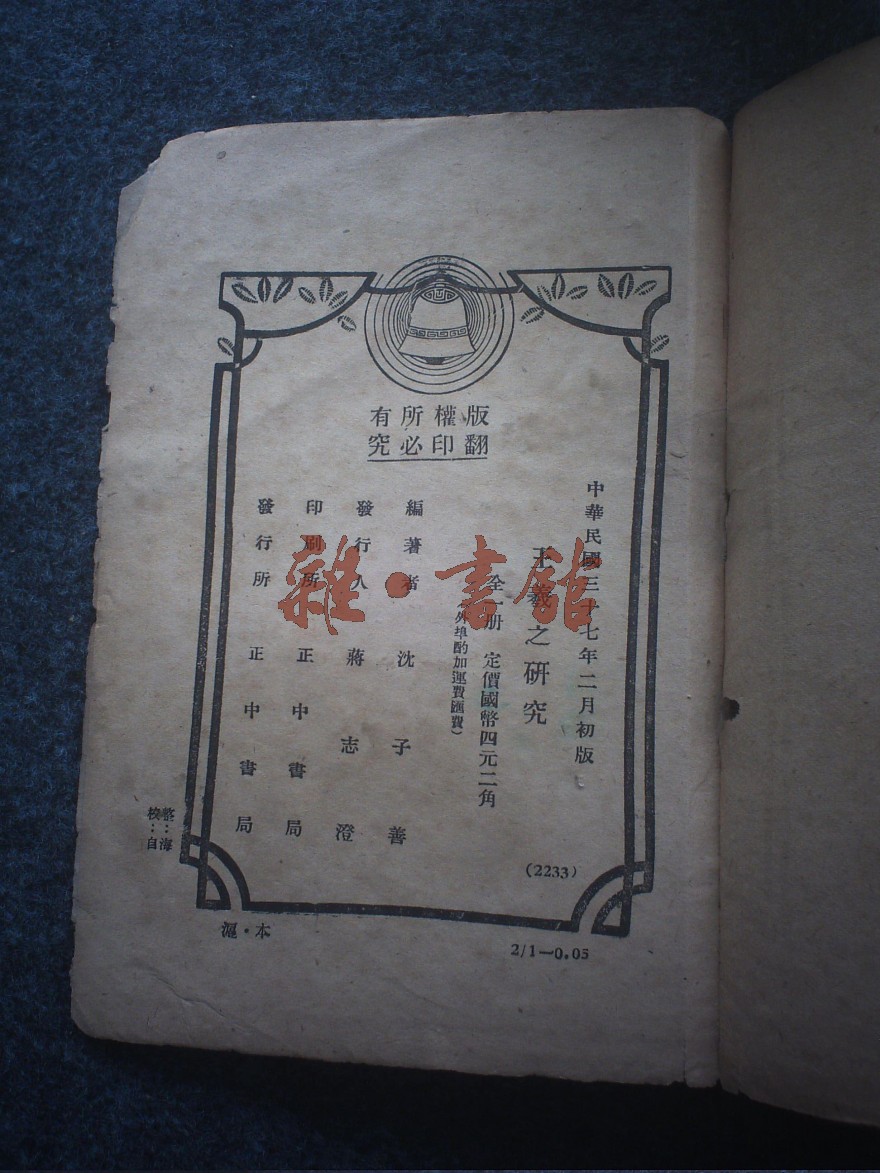 版權所有
翻印必究
中華民國三十七年二月初版
王羲之研究
全一册 定價國幣四元二角
(外埠酌加運費匯費)
編著者 沈子善
發行人 蔣志澄
印刷所 正中書局
發行所 正中書局
(2233)
整：海
校：自
滬·本
2/1—0.05
雜·書館